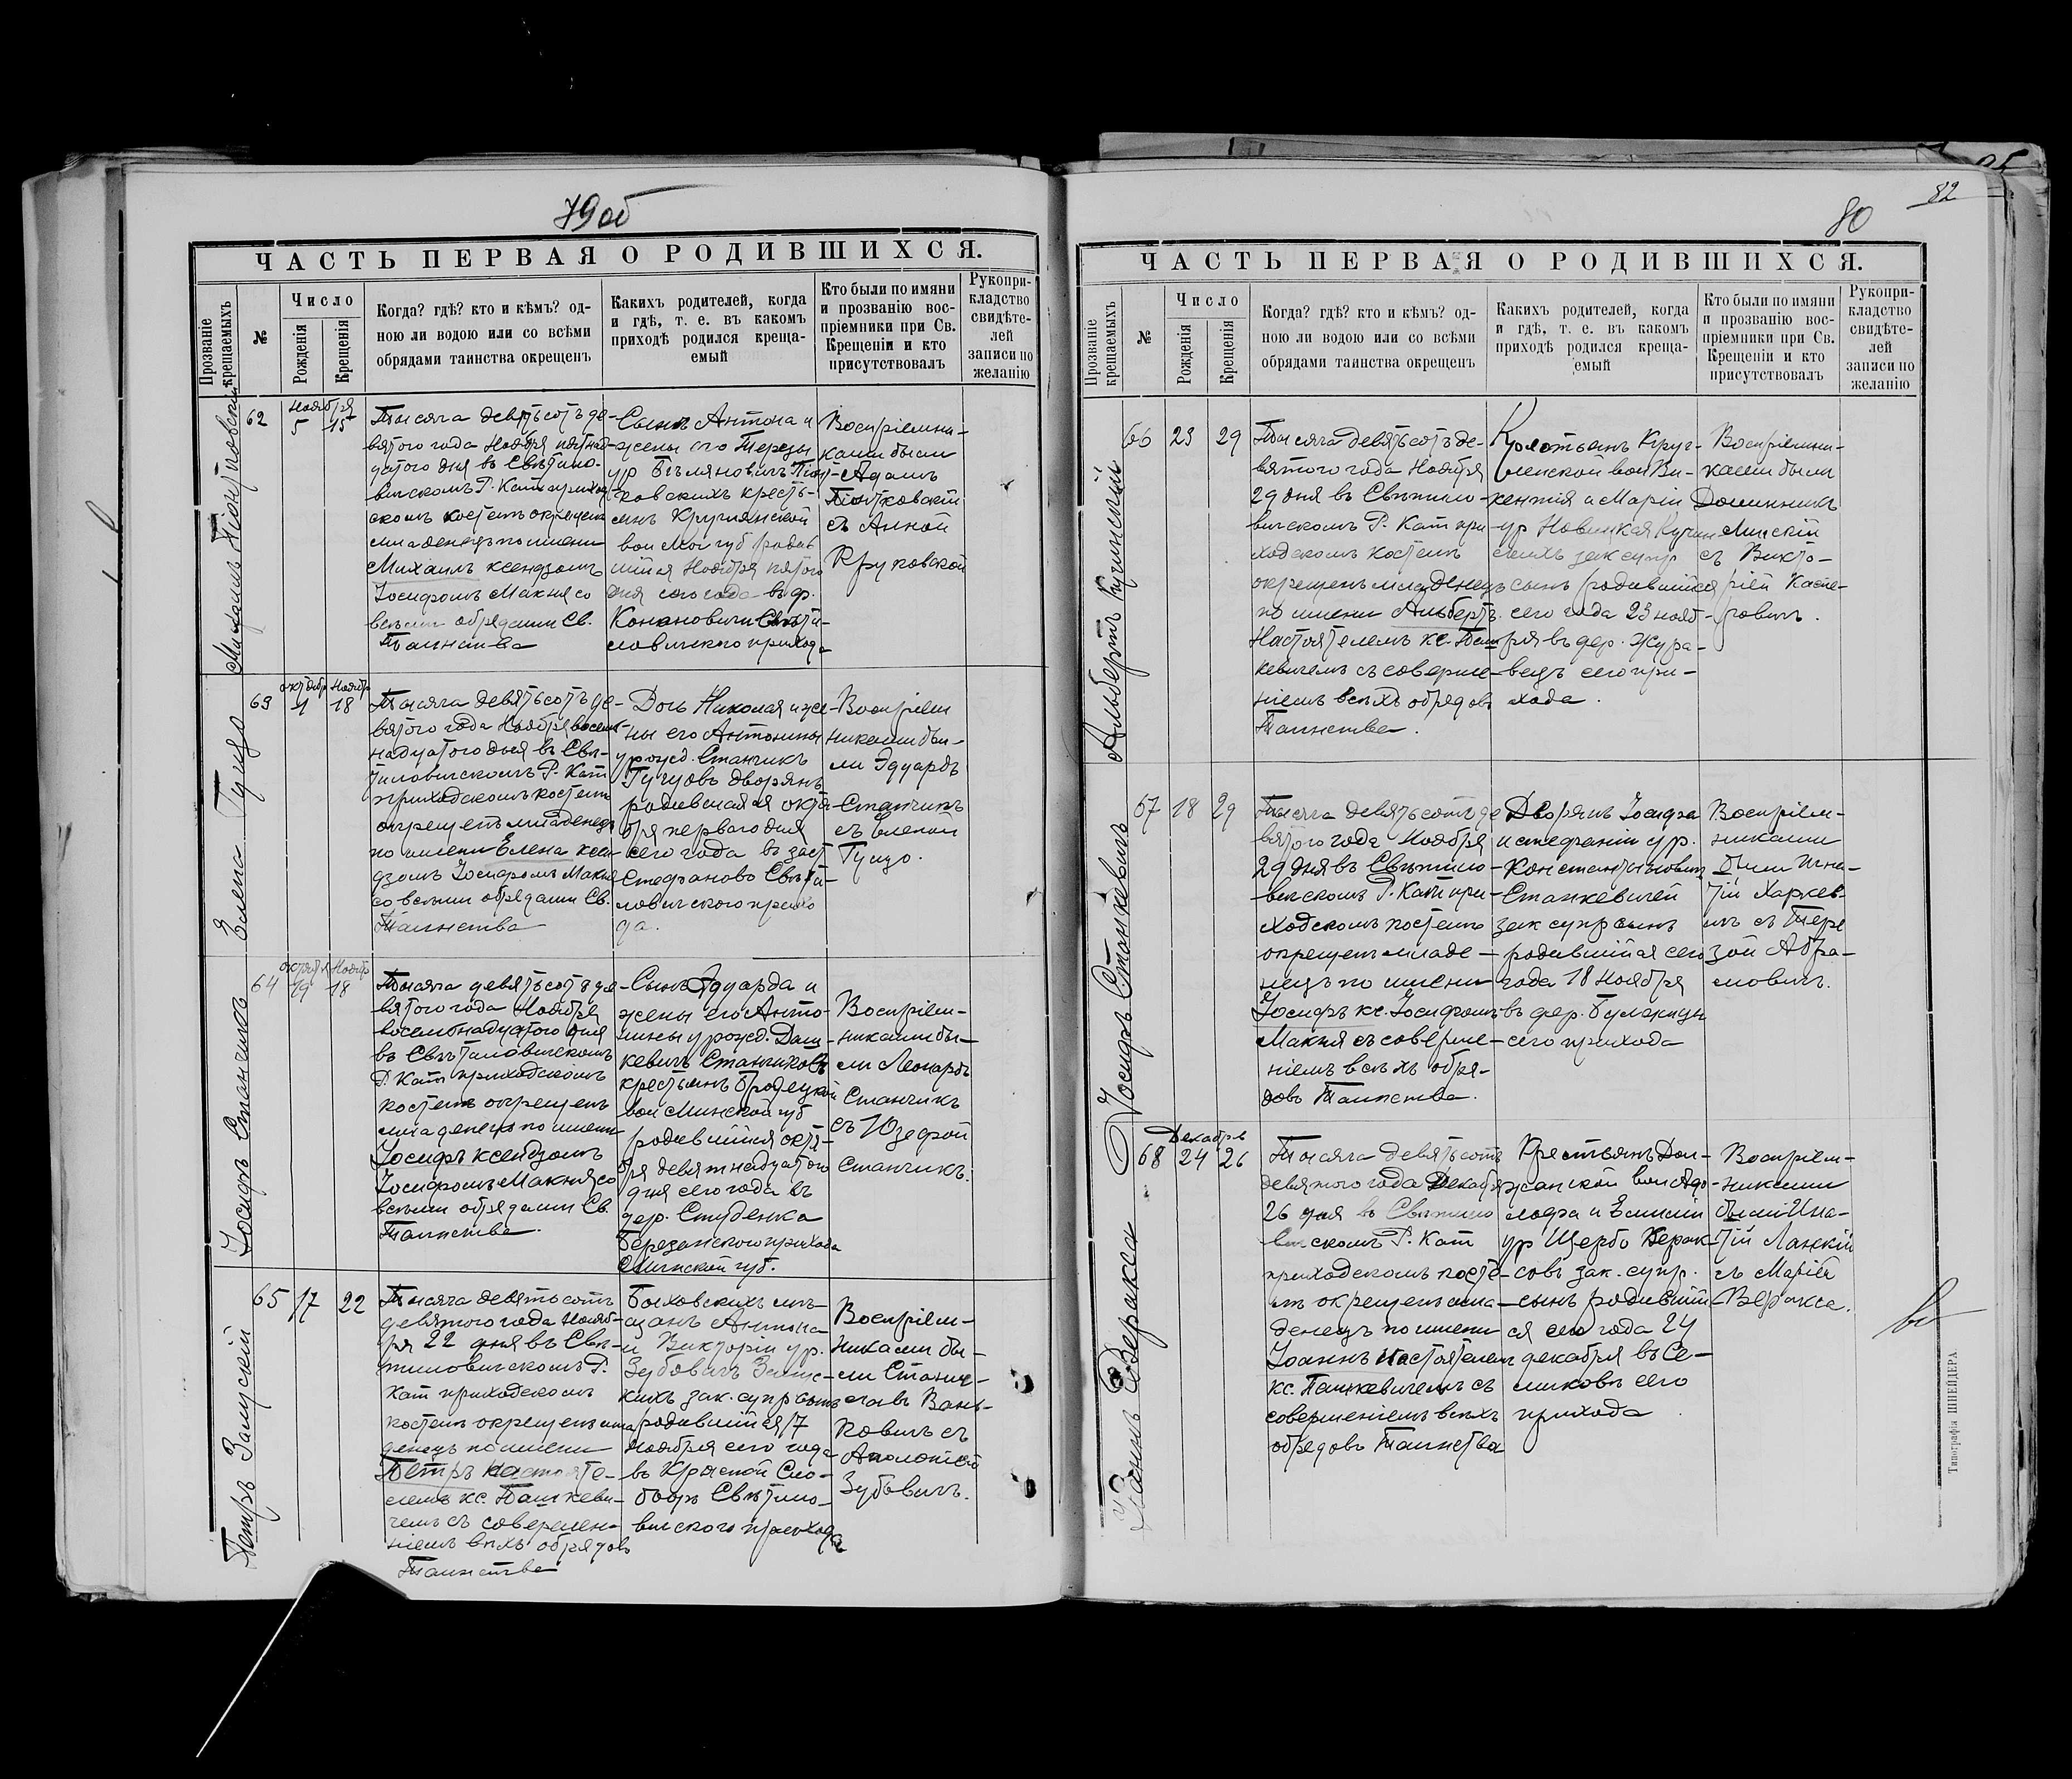 79 об
ЧАСТЬ ПЕРВАЯ О РОДИВШИХСЯ.
Прозваніе крещаемыхъ
№
Число
Рожденія
Крещенія
Когда? гдѣ? кто и кѣмъ? од-
ною ли водою или со всѣми
обрядами таинства окрещенъ
Какихъ родителей, когда
и гдѣ, т. е. въ какомъ
приходѣ родился креща-
емый
Кто были по имяни
и прозванію вос-
пріемники при Св.
Крещеніи и кто
присутствовалъ
Рукопри-
кладство
свидѣте-
лей
записи по
желанію
Михаилъ Піонтковскій
62
Ноября
5 15
Тысяча девятьсотъ де-
вятого года Ноября пятнад-
цатого дня въ Свѣтило-
вичскомъ Р. Кат приход
скомъ костелѣ окрещенъ
младенецъ по имени
Михаилъ ксендзомъ
Іосифомъ Макня со
всѣми обрядами Св.
Таинства
Сынъ Антона и
жены его Терезы
ур Бѣляновичъ Піонт-
ковскихъ кресть-
янъ Кручанской
вол Мог губ родив
шійся Ноября пятого
дня сего года въ ф.
Конановичи Свѣти-
ловичского прихода
Воспріемни-
ками были
Адамъ
Піонтковскій
съ Анной
Круковской
Елена Гуцо
63
октября Ноября
1 18
Тысяча девятьсотъ де-
вятого года Ноября восем-
надцатого дня въ Свѣ-
тиловичскомъ Р. Кат
приходскомъ костелѣ
окрещенъ младенецъ
по имени Елена ксен-
дзомъ Іосифомъ Макня
со всѣми обрядами Св.
Таинства
Дочь Николая и же-
ны его Антонины
урожд. Станчикъ
Гуцовъ дворянъ
родившаяся октя-
бря первого дня
сего года въ заст
Стефаново Свѣти-
ловичского прихо
да.
Воспріем
никами бы-
ли Эдуардъ
Станчикъ
съ Еленой
Гуцо.
Іосифъ Станчикъ
64
октября Ноябр
19 18
Тысяча девятьсотъ де-
вятого года Ноября
восемнадцатого дня
въ Свѣтиловичскомъ
Р. Кат приходскомъ
костелѣ окрещенъ
младенецъ по имени
Іосифъ ксендзомъ
Іосифомъ Макня со
всѣми обрядами Св.
Таинства.
Сынъ Эдуарда и
жены его Анто-
нины урожд. Даш-
кевичъ Станчиковъ
крестьянъ Бродецкой
вол Минской губ
родившійся октя-
бря девятнадцатого
дня сего года въ
дер. Студенка
Березинского прихода
Минской губ.
Воспріем-
никами бы-
ли Леонардъ
Станчикъ
съ Юзефой
Станчикъ.
Петръ Запускій
65 17 22
Тысяча девятьсотъ
девятого года Нояб-
ря 22 дня въ Свѣ-
тиловичскомъ Р.
Кат приходскомъ
костелѣ окрещенъ мла
денецъ по имени
Петръ настояте-
лемъ кс. Пашкеви-
чемъ съ совершен-
ніемъ всѣхъ обрядовъ
Таинства
Быховскихъ мѣ-
щанъ Антона
и Викторіи ур.
Зубовичъ Запус-
кихъ зак. супр сынъ
родившійся 17
Ноября сего года
въ Красной Сло-
бодѣ Свѣтило-
вичского прихода
Воспріем-
никами бы-
ли Станис-
лавъ Вань-
ковичъ съ
Аполоніей
Зубовичъ.
82
80
ЧАСТЬ ПЕРВАЯ О РОДИВШИХСЯ.
Прозваніе крещаемыхъ
№
Число
Рожденія
Крещенія
Когда? гдѣ? кто и кѣмъ? од-
ною ли водою или со всѣми
обрядами таинства окрещенъ
Какихъ родителей, когда
и гдѣ, т. е. въ какомъ
приходѣ родился креща-
емый
Кто были по имяни
и прозванію вос-
пріемники при Св.
Крещеніи и кто
присутствовалъ
Рукопри-
кладство
свидѣте-
лей
записи по
желанію
Альбертъ Кучинскій
66 23 29
Тысяча девятьсотъ де-
вятого года Ноября
29 дня въ Свѣтило-
вичскомъ Р. Кат при-
ходскомъ костелѣ
окрещенъ младенецъ
по имени Альбертъ.
Настоятелемъ кс. Паш
кевичемъ съ соверше-
ніемъ всѣхъ обрядовъ
Таинства.
Крестьянъ Круг-
лянской вол Ви-
кентія и Маріи
ур Новицкая Кучин
скихъ зак супр
сынъ родившійся
сего года 23 нояб-
ря въ дер. Жура-
вецъ сего при-
хода.
Воспріемни-
ками были
Доминикъ
Минскій
съ Викто-
ріей Каспе-
ровичъ.
Іосифъ Станкевичъ
67 18 29
Тысяча девятьсотъ де
вятого года Ноября
29 дня въ Свѣтило-
вичскомъ Р. Кат при-
ходскомъ костелѣ
окрещенъ младе-
нецъ по имени
Іосифъ кс. Іосифомъ
Макня съ соверше-
ніемъ всѣхъ обря-
довъ Таинства.
Дворянъ Іосифа
и Стефаніи ур.
Константиновичъ
Станкевичей
зак супр сынъ
родившійся сего
года 18 Ноября
въ дер.
сего прихода
Воспріем-
никами
были Игна-
тій Харкев-
ичъ съ Тере
зой Абра-
мовичъ.
Іоаннъ Веракса
Декабря
68 24 26
Тысяча девятьсотъ
девятого года Декабр
26 дня въ Свѣтило
вичскомъ Р. Кат
приходскомъ косте-
лѣ окрещенъ мла-
денецъ по имени
Іоаннъ Настоятелем
кс. Пашкевичемъ съ
совершеніемъ всѣхъ
обрядовъ Таинства
Крестьянъ Дол-
жанской вол Адо-
льфа и Эмиліи
ур Щербо Верак-
совъ зак. супр.
сынъ родившій-
ся сего года 24
декабря въ Се-
ликовѣ сего
прихода.
Воспріем-
никами
были Игна-
тій Ланскій
съ Маріей
Веракса.
Типографія ШНЕЙДЕРА